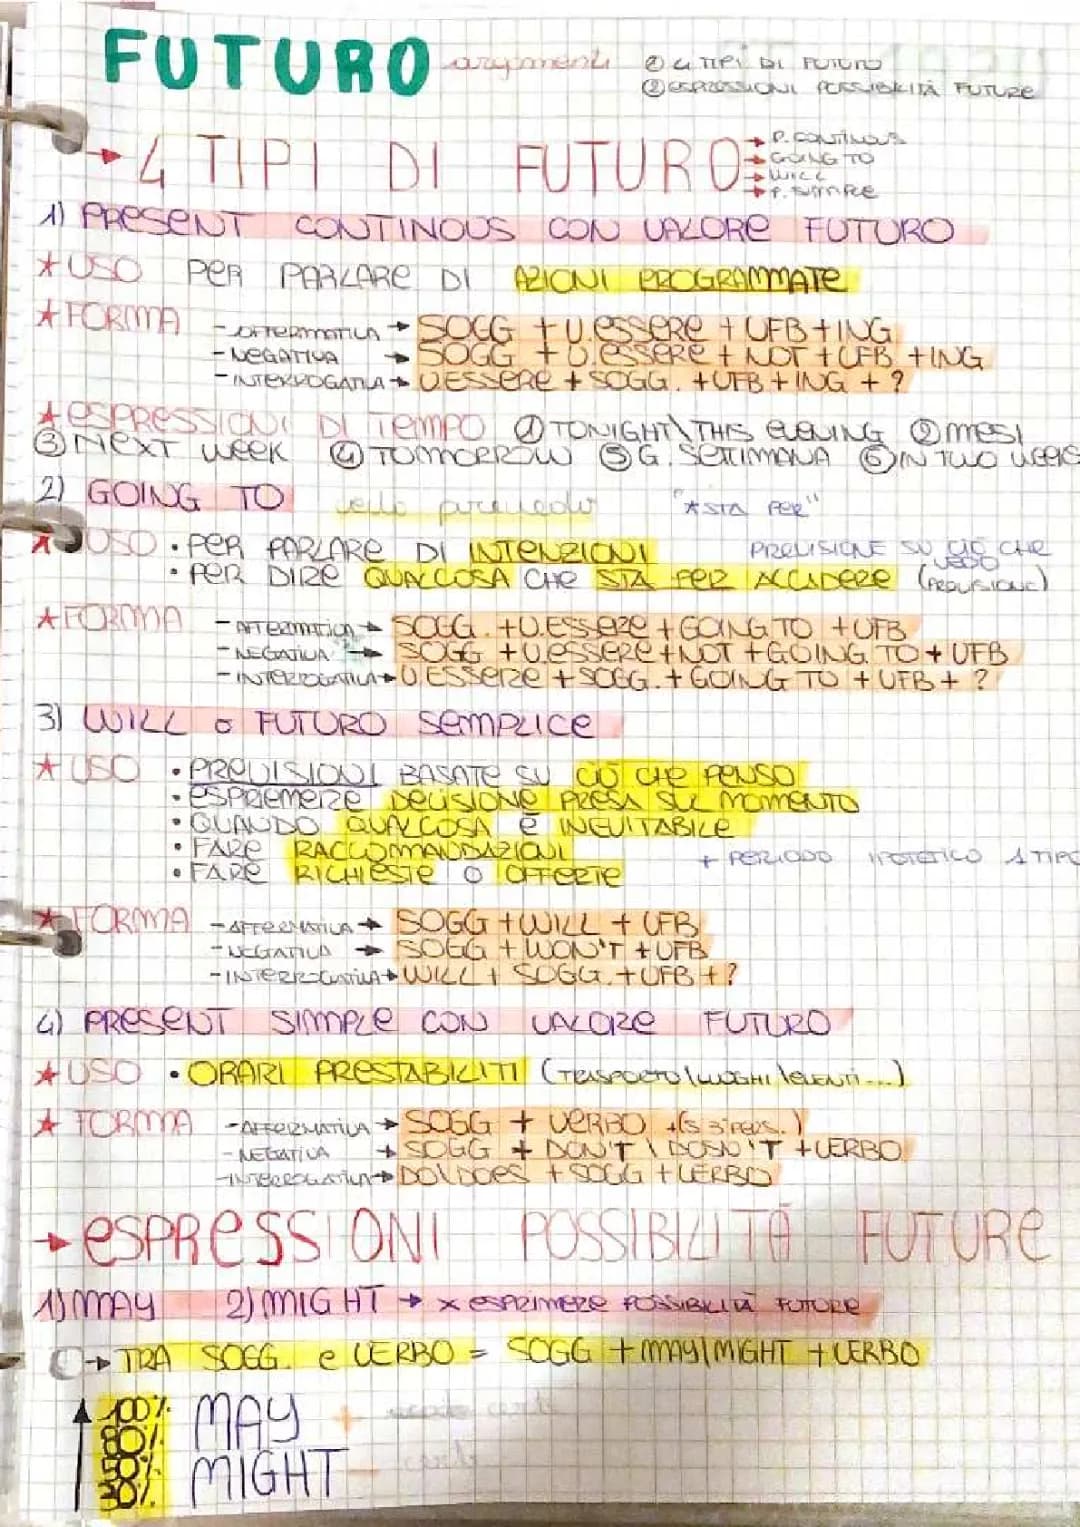 FUTURO argomenti ① 4 TIPI DI FUTURO
② ESPRESSIONI POSSIBILITÀ FUTURE
→ 4 TIPI DI FUTURO → P. CONTINOUS
→ GOING TO
→ WILL
→ P. SIMPLE
1) PRESENT CONTINOUS CON VALORE FUTURO
★ USO PER PARLARE DI AZIONI PROGRAMMATE
★ FORMA - AFFERMATIVA → SOGG + V.ESSERE + VFB + ING
- NEGATIVA → SOGG + V.ESSERE + NOT + VFB + ING
- INTERROGATIVA → V.ESSERE + SOGG. + VFB + ING + ?
★ ESPRESSIONI DI TEMPO ① TONIGHT \ THIS EVENING ② MESI
③ NEXT WEEK ④ TOMORROW ⑤ G. SETTIMANA ⑥ IN TWO WEEKS
2) GOING TO "★ STA PER"
★ USO • PER PARLARE DI INTENZIONI PREVISIONE SU CIÒ CHE VEDO
• PER DIRE QUALCOSA CHE STA PER ACCADERE (PREVISIONE)
★ FORMA - AFFERMATIVA → SOGG. + V.ESSERE + GOING TO + VFB
- NEGATIVA → SOGG + V.ESSERE + NOT + GOING TO + VFB
- INTERROGATIVA → V.ESSERE + SOGG. + GOING TO + VFB + ?
3) WILL o FUTURO SEMPLICE
★ USO • PREVISIONI BASATE SU CIÒ CHE PENSO
• ESPRIEMERE DECISIONE PRESA SUL MOMENTO
• QUANDO QUALCOSA È INEVITABILE
• FARE RACCOMANDAZIONI + PERIODO IPOTETICO 1 TIPO
• FARE RICHIESTE O OFFERTE
★ FORMA - AFFERMATIVA → SOGG + WILL + VFB
- NEGATIVA → SOGG + WON'T + VFB
- INTERROGATIVA → WILL + SOGG. + VFB + ?
4) PRESENT SIMPLE CON VALORE FUTURO
★ USO • ORARI PRESTABILITI (TRASPORTO \ LUOGHI \ EVENTI...)
★ FORMA - AFFERMATIVA → SOGG + VERBO +(S 3ª PERS.)
- NEGATIVA → SOGG + DON'T \ DOSN'T + VERBO
- INTERROGATIVA → DO \ DOES + SOGG + VERBO
→ ESPRESSIONI POSSIBILITÀ FUTURE
1) MAY 2) MIGHT → x ESPRIMERE POSSIBILITÀ FUTURE
→ TRA SOGG. e VERBO = SOGG + MAY \ MIGHT + VERBO
100% MAY +
80%
50% MIGHT -
30%